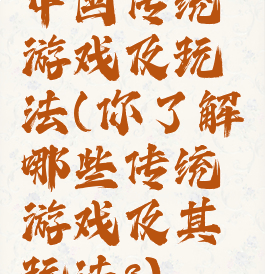 中国传统
游戏及玩
法(你了解
哪些传统
游戏及其
玩法?)